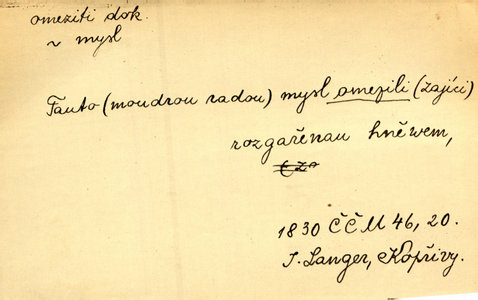 omeziti dok.
~ mysl
Tauto (moudrou radou) mysl omezili (zajíci)
rozgařenau hněwem,
1830 ČČM 46, 20.
J. Langer, Kopřivy.